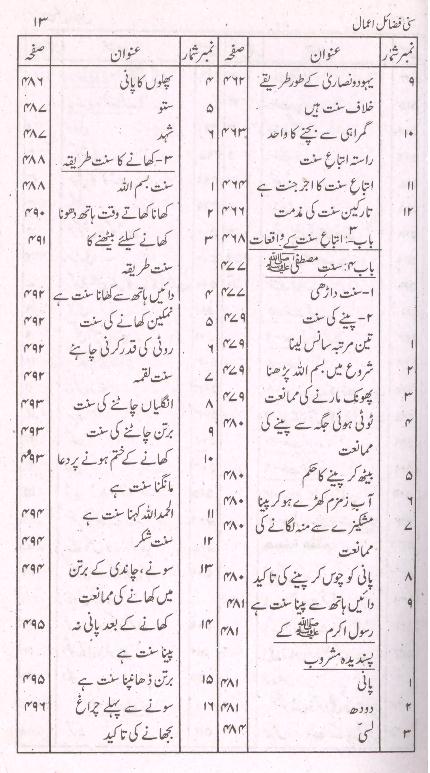 سنی فضائل اعمال ۱۳
نمبر شمار عنوان صفحہ
۹ یہود و نصاریٰ کے طور طریقے ۴۶۲
خلاف سنت ہیں
۱۰ گمراہی سے بچنے کا واحد ۴۶۳
راستہ اتباعِ سنت
۱۱ اتباعِ سنت کا اجر جنت ہے ۴۶۴
۱۲ تارکین سنت کی مذمت ۴۶۶
باب۳: اتباعِ سنت کے واقعات ۴۶۸
باب۴: سنتِ مصطفیٰ ﷺ ۴۷۷
۱- سنت داڑھی ۴۷۷
۲- پینے کی سنت ۴۷۹
۱ تین مرتبہ سانس لینا ۴۷۹
۲ شروع میں بسم اللہ پڑھنا ۴۷۹
۳ پھونک مارنے کی ممانعت ۴۷۹
۴ ٹوٹی ہوئی جگہ سے پینے کی ۴۸۰
ممانعت
۵ بیٹھ کر پینے کا حکم ۴۸۰
۶ آبِ زمزم کھڑے ہو کر پینا ۴۸۰
۷ مشکیزے سے منہ لگانے کی ۴۸۰
ممانعت
۸ پانی کو چوس کر پینے کی تاکید ۴۸۰
۹ دائیں ہاتھ سے پینا سنت ہے ۴۸۱
رسول اکرم ﷺ کے ۴۸۱
پسندیدہ مشروب
۱ پانی ۴۸۱
۲ دودھ ۴۸۱
۳ لسی ۴۸۴
نمبر شمار عنوان صفحہ
۴ پھلوں کا پانی ۴۸۶
۵ ستو ۴۸۷
۶ شہد ۴۸۷
۳- کھانے کا سنت طریقہ ۴۸۸
۱ سنت بسم اللہ ۴۸۸
۲ کھانا کھاتے وقت ہاتھ دھونا ۴۹۰
۳ کھانے کیلئے بیٹھنے کا ۴۹۱
سنت طریقہ
۴ دائیں ہاتھ سے کھانا سنت ہے ۴۹۲
۵ نمکین کھانے کی سنت ۴۹۲
۶ روٹی کی قدر کرنی چاہئے ۴۹۲
۷ سنت لقمہ ۴۹۲
۸ انگلیاں چاٹنے کی سنت ۴۹۳
۹ برتن چاٹنے کی سنت ۴۹۳
۱۰ کھانے کے ختم ہونے پر دعا ۴۹۳
مانگنا سنت ہے
۱۱ الحمد اللہ کہنا سنت ہے ۴۹۴
۱۲ سنت شکر ۴۹۴
۱۳ سونے، چاندی کے برتن ۴۹۴
میں کھانے کی ممانعت
۱۴ کھانے کے بعد پانی نہ ۴۹۵
پینا سنت ہے
۱۵ برتن ڈھانپنا سنت ہے ۴۹۵
۱۶ سونے سے پہلے چراغ ۴۹۶
بجھانے کی تاکید